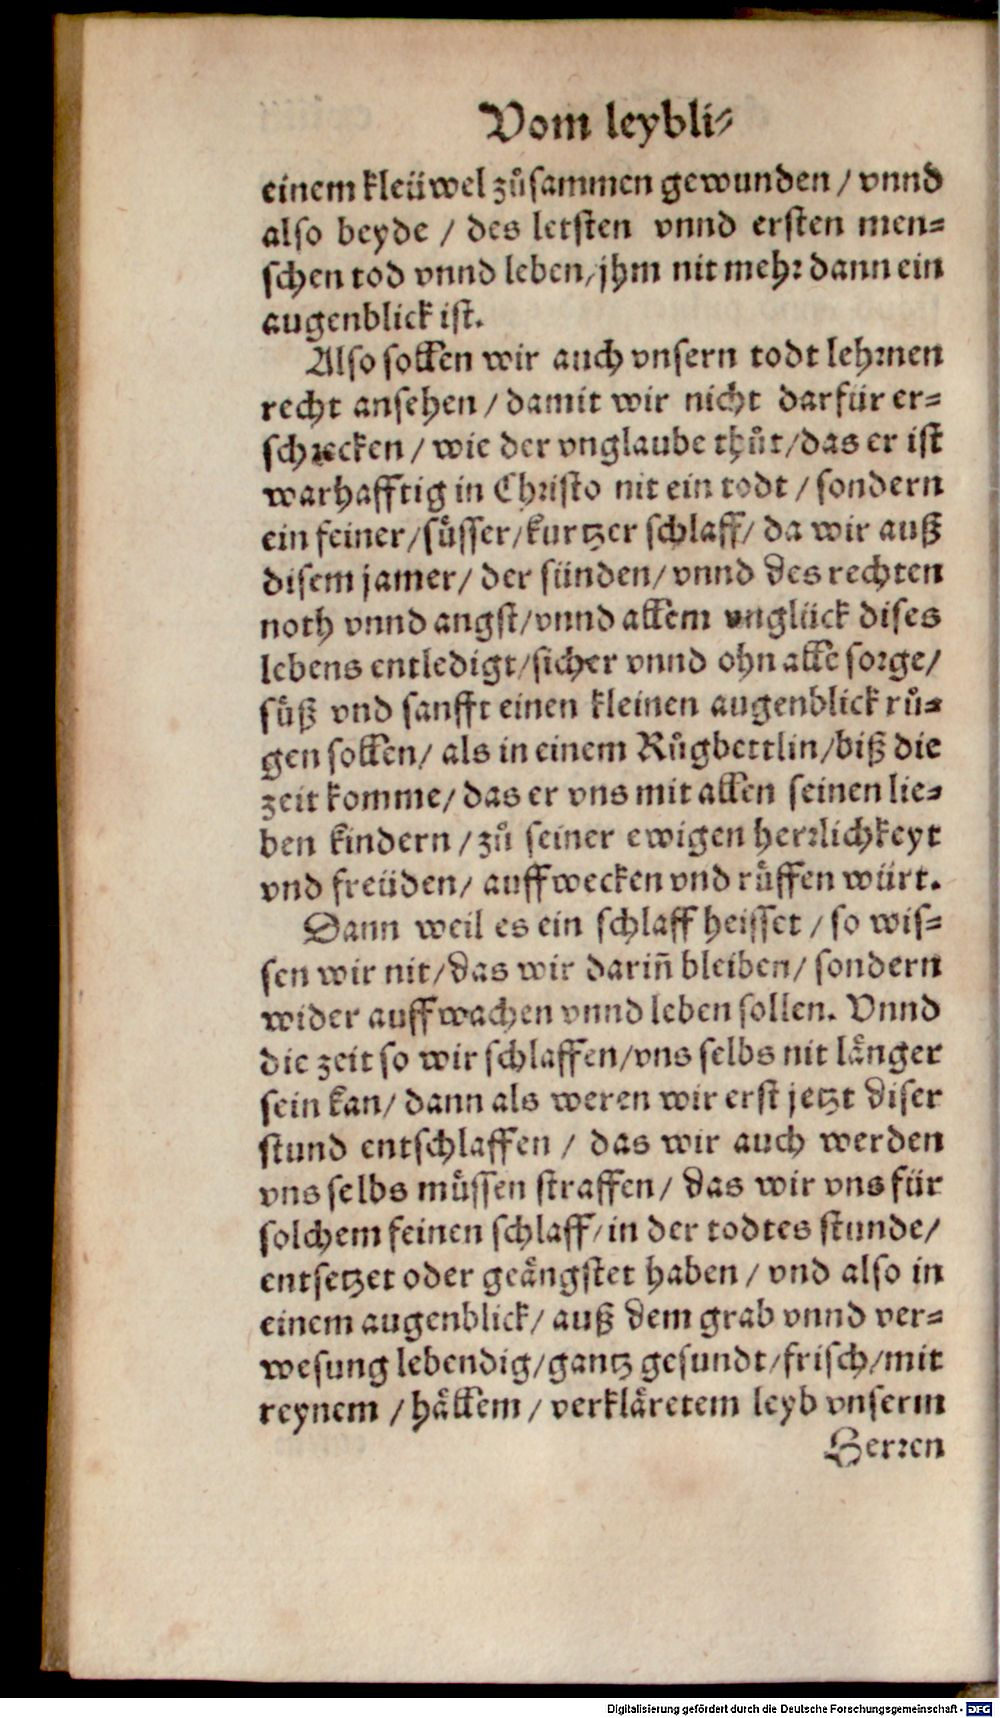 Vom leybli⸗
einem kleüwel zůsammen gewunden / vnnd
also beyde / des letsten vnnd ersten men⸗
schen tod vnnd leben / jhm nit mehr dann ein
augenblick ist.
Also sollen wir auch vnsern todt lehrnen
recht ansehen / damit wir nicht darfür er⸗
schrecken / wie der vnglaube thůt / das er ist
warhafftig in Christo nit ein todt / sondern
ein feiner / süsser / kurtzer schlaff / da wir auß
disem jamer / der sünden / vnnd des rechten
noth vnnd angst / vnnd allem vnglück dises
lebens entledigt / sicher vnnd ohn alle sorge /
süß vnd sanfft einen kleinen augenblick rů⸗
gen sollen / als in einem Růgbettlin / biß die
zeit komme / das er vns mit allen seinen lie⸗
ben kindern / zů seiner ewigen herrlichkeyt
vnd freüden / auffwecken vnd rüffen würt.
Dann weil es ein schlaff heisset / so wis⸗
sen wir nit / das wir darin̄ bleiben / sondern
wider auffwachen vnnd leben sollen. Vnnd
die zeit so wir schlaffen / vns selbs nit länger
sein kan / dann als weren wir erst jetzt diser
stund entschlaffen / das wir auch werden
vns selbs müssen straffen / das wir vns für
solchem feinen schlaff / in der todtes stunde /
entsetzet oder geängstet haben / vnd also in
einem augenblick / auß dem grab vnnd ver⸗
wesung lebendig / gantz gesundt / frisch / mit
reynem / hällem / verkläretem leyb vnserm
Herren
Digitalisierung gefördert durch die Deutsche Forschungsgemeinschaft - DFG